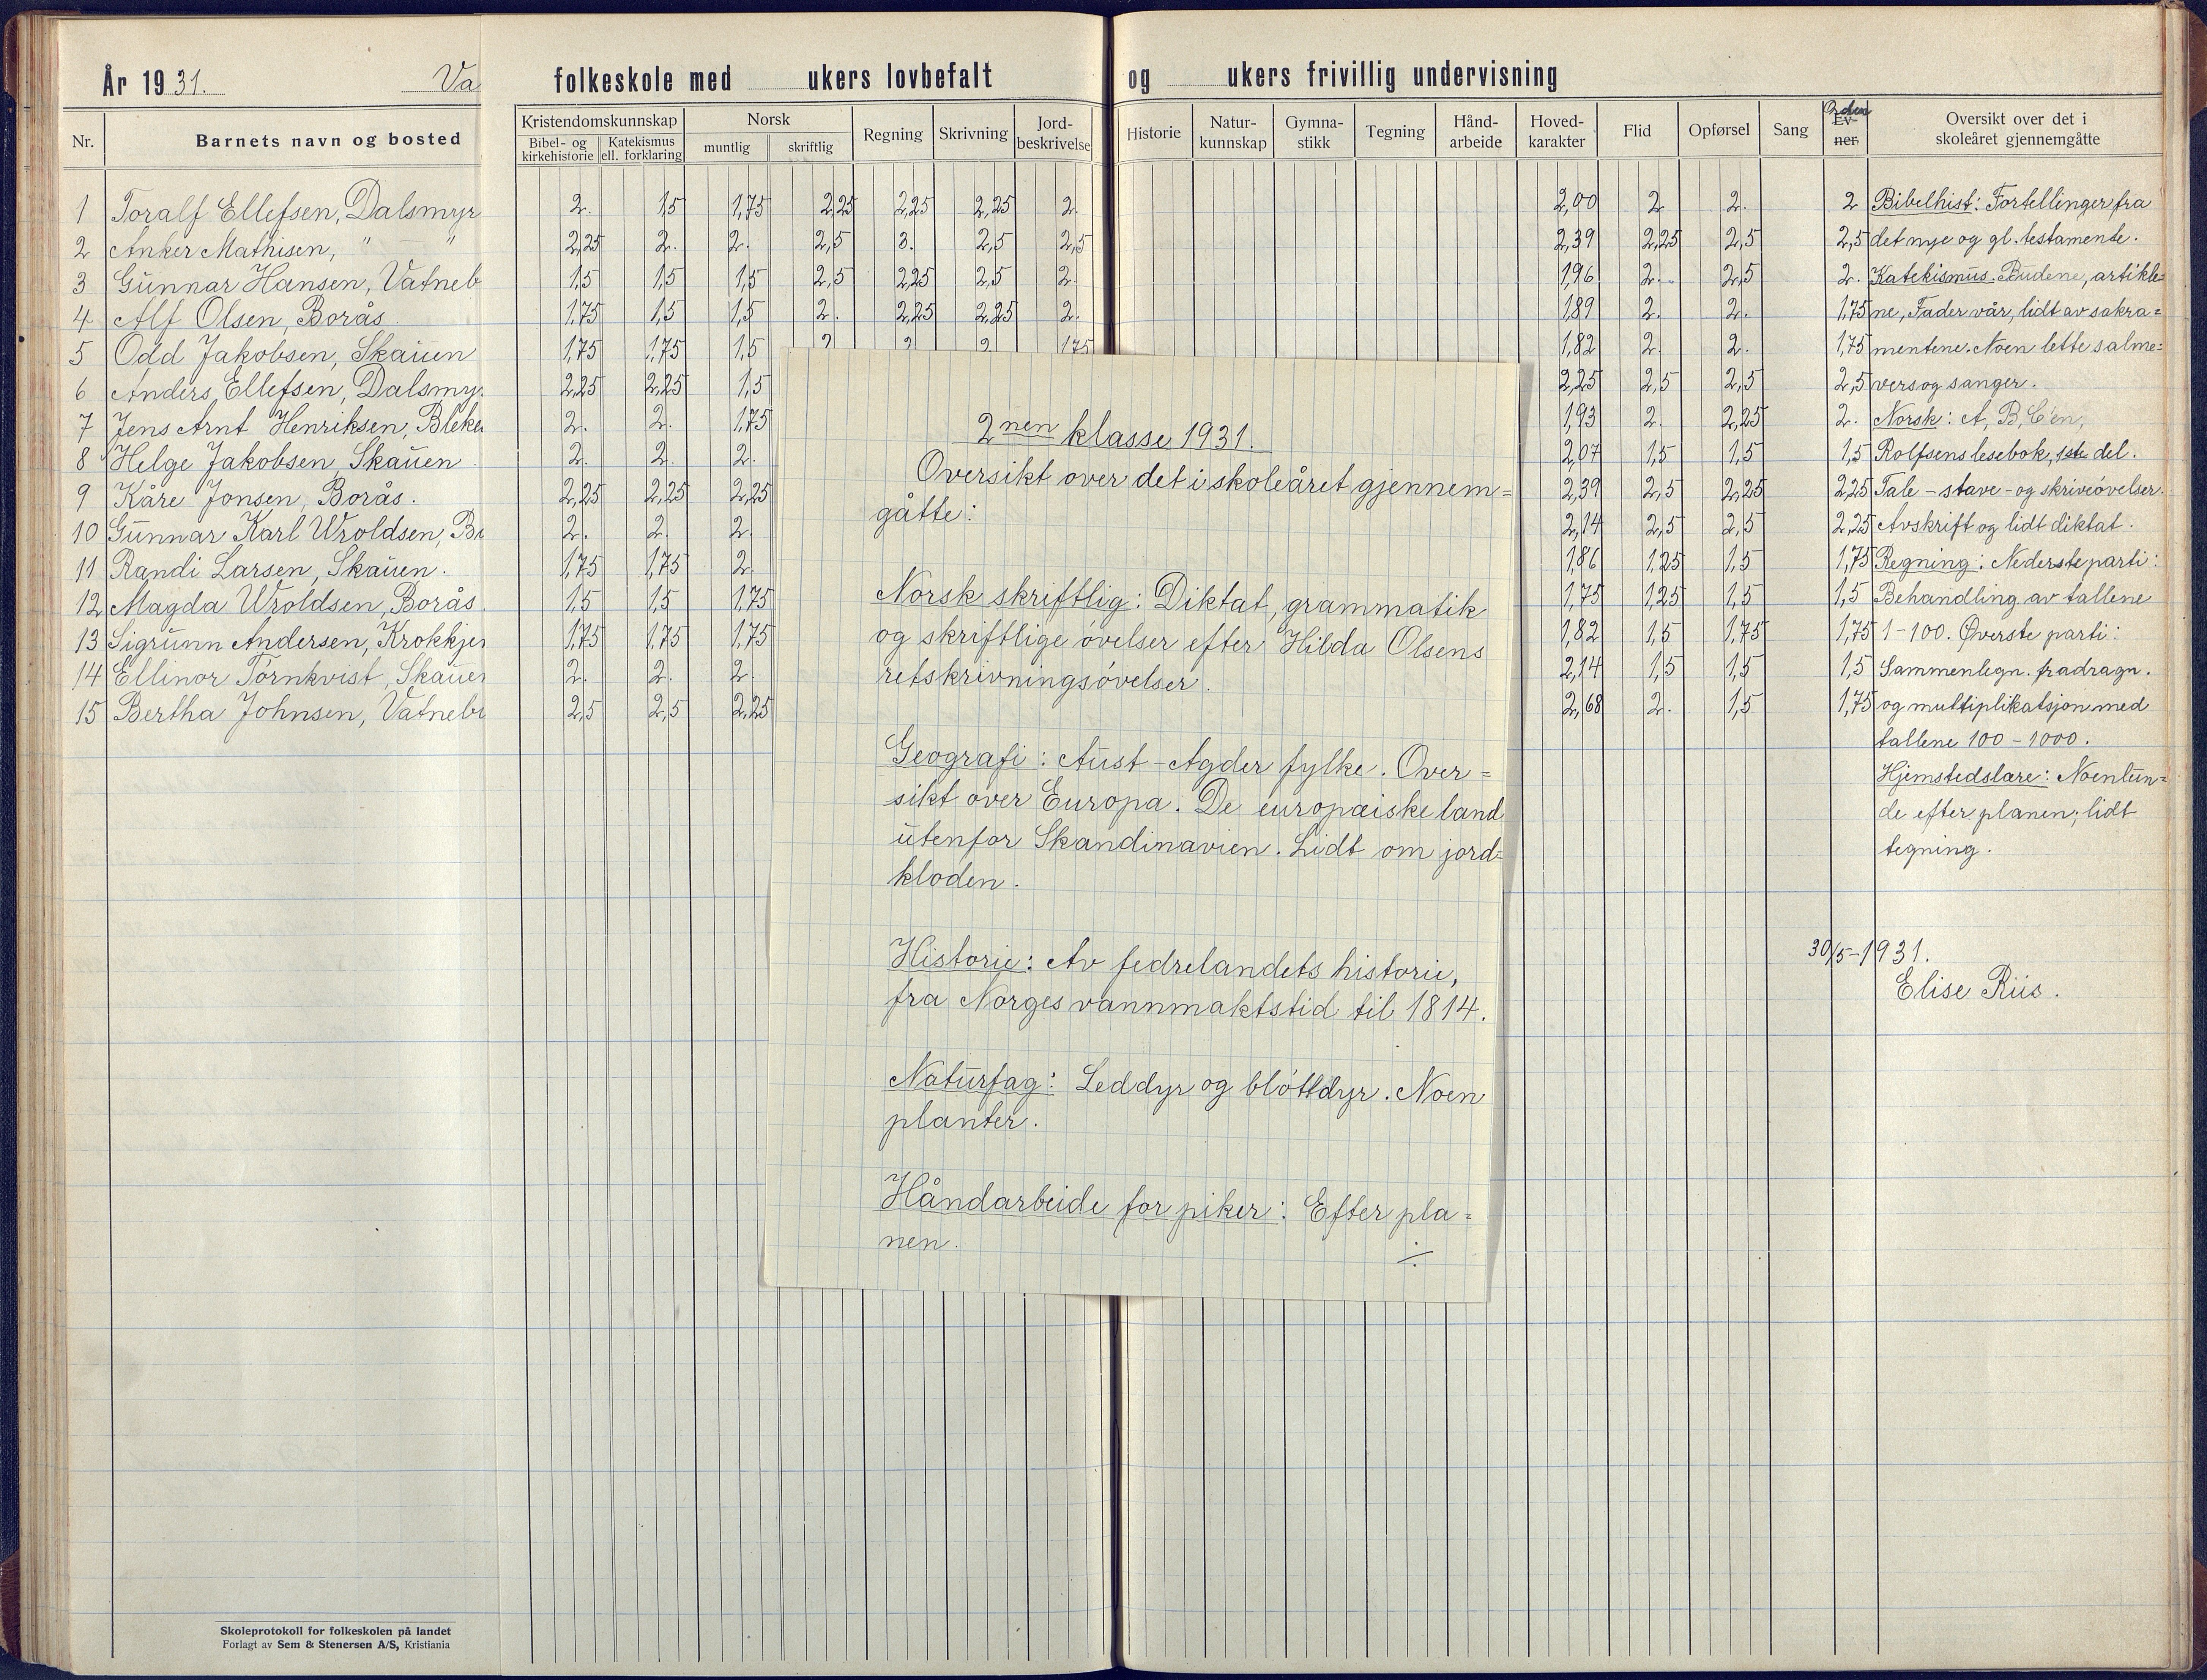 År 1931.
Va
folkeskole med ukers lovbefalt
og ukers frivillig undervisning
Nr. Barnets navn og bosted
Kristendomskunnskap Norsk Regning Skrivning Jord-beskrivelse
Bibel- og kirkehistorie Katekismus ell. forklaring muntlig skriftlig
Historie Natur-kunnskap Gymna-stikk Tegning Hånd-arbeide Hoved-karakter Flid Opførsel Sang Orden Ev-ner Oversikt over det i skoleåret gjennemgåtte
1 Toralf Ellefsen, Dalsmyr 2. 1,5 1,75 2,25 2,25 2,25 2. 2,00 2 2. 2
2 Anker Mathisen, " " 2,25 2. 2. 2,5 3. 2,5 2,5 2,39 2,25 2,5 2,5
3 Gunnar Hansen, Vatneb 1,5 1,5 1,5 2,5 2,25 2,5 2. 1,96 2. 2,5 2.
4 Alf Olsen, Borås. 1,75 1,5 1,5 2. 2,25 2,25 2. 1,89 2. 2. 1,75
5 Odd Jakobsen, Skauen 1,75 1,75 1,5 2 2 2. 1,75 1,82 2. 2. 1,75
6 Anders Ellefsen, Dalsmy. 2,25 2,25 1,5 2,25 2,5 2,5 2,5
7 Jens Arnt Henriksen, Bleke 2. 2. 1,75 1,93 2. 2,25 2.
8 Helge Jakobsen, Skauen. 2. 2. 2. 2,07 1,5 1,5 1,5
9 Kåre Jonsen, Borås. 2,25 2,25 2,25 2,39 2,5 2,25 2,25
10 Gunnar Karl Wroldsen, B 2. 2. 2. 2,14 2,5 2,5 2,25
11 Randi Larsen, Skauen. 1,75 1,75 2. 1,86 1,25 1,5 1,75
12 Magda Wroldsen, Borås. 1,5 1,5 1,75 1,75 1,25 1,5 1,5
13 Sigrunn Andersen, Krokkjer 1,75 1,75 1,75 1,82 1,5 1,75 1,75
14 Ellinor Törnkvist, Skauen 2. 2. 2. 2,14 1,5 1,5 1,5
15 Bertha Johnsen, Vatneb 2,5 2,5 2,25 2,68 2. 1,5 1,75
Bibelhist: Fortellinger fra
det nye og gl. testamente.
Katekismus. Budene, artikle=
ne, Fader vår, lidt av sakra=
mentene. Noen lette salme=
vers og sanger.
Norsk: A, B, C'en,
Rolfsens lesebok, 1ste del.
Tale- stave- og skriveövelser.
Avskrift og lidt diktat.
Regning: Nederste parti:
Behandling av tallene
1-100. Øverste parti:
Sammenlegn. fradragn.
og multiplikatsjon med
tallene 100-1000.
Hjemstedslære: Noen tun=
de efter planen; lidt
tegning.
30/5-1931.
Elise Riis.
2nen klasse 1931.
Oversikt over det i skoleåret gjennem=
gåtte:
Norsk skriftlig: Diktat, grammatik
og skriftlige övelser efter Hilda Olsens
retskrivningsövelser.
Geografi: Aust-Agder fylke. Over=
sikt over Europa. De europæiske land
utenfor Skandinavien. Lidt om jord=
kloden.
Historie: Av fedrelandets historie,
fra Norges vannmaktstid til 1814.
Naturfag: Leddyr og blötdyr. Noen
planter.
Håndarbeide for piker: Efter pla=
nen.
Skoleprotokoll for folkeskolen på landet
Forlagt av Sem & Stenersen A/S, Kristiania